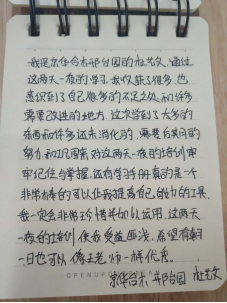 我是京华合木邢台园的杜艺文,通过
这两天一夜的学习,我收获了很多,也
意识到了自己很多的不足之处,和许多
需要改进的地方,这次学到了太多的
东西和许多还未消化的,需要自己
努力,和巩固来对这两天一夜的培训牢
牢记住与掌握,还有学习手册真的是一个
非常棒的可以让我提高自己能力的工具.
我一定会非常珍惜并加以运用,这两天
一夜的培训使我受益匪浅,希望有朝
一日也可以像王老师一样优秀.
OPENUP
京华合木.邢台园 杜艺文